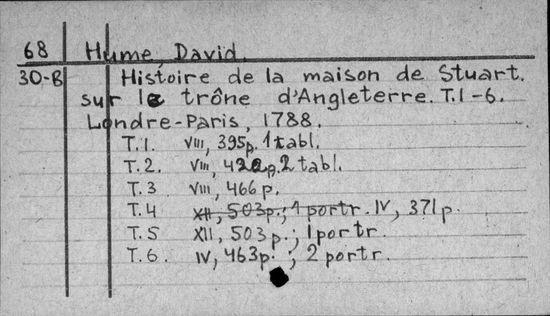 68 Hume, David.
30-B Histoire de la maison de Stuart.
sur le trône d'Angleterre. T.1-6.
Londre-Paris, 1788.
T.1. VIII, 395p. 1 tabl.
T.2. VIII, 422p. 2 tabl.
T.3 VIII, 466 p.
T.4 XII, 503p.; 1 portr. IV, 371 p.
T.5 XII, 503 p.; 1 portr.
T.6. IV, 463p. ; 2 portr.